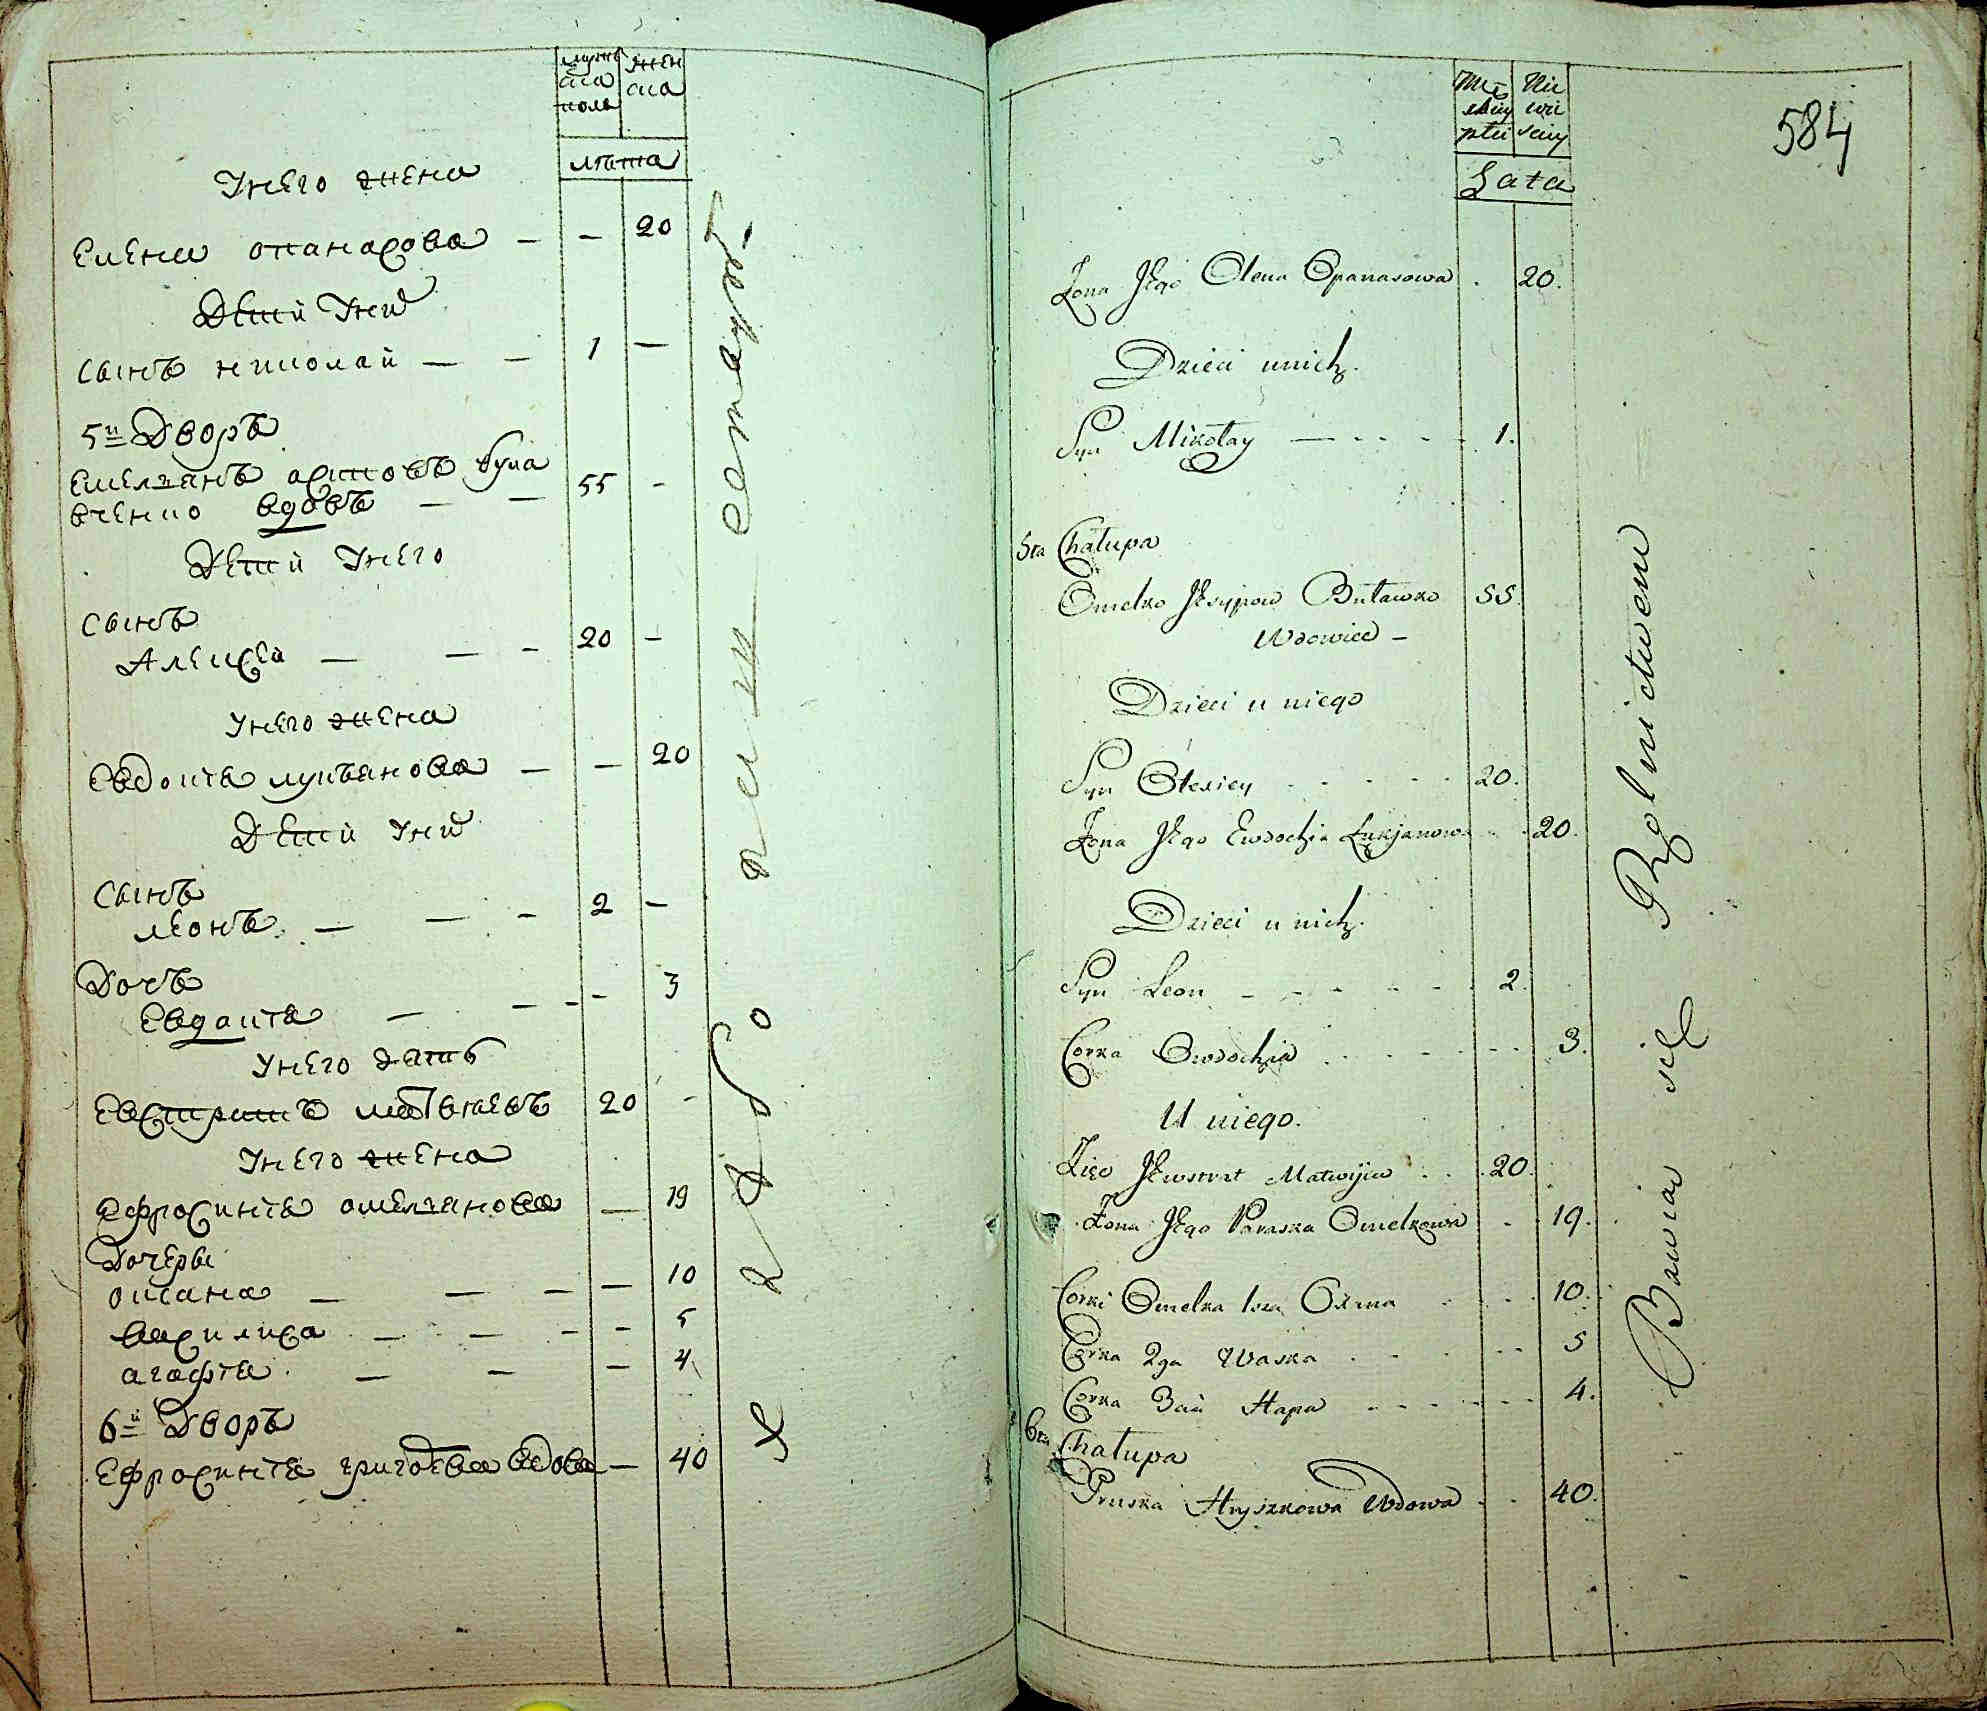 муже
ска
полъ
жен
ска
лѣта
Унего жена
Елена опанасова — — 20
Дѣтей Уних
сынъ николай — — 1 —
5й Дворъ
Емелианъ осиповъ Була
вченко вдовъ — — 55 -
Дѣтей Унего
сынъ
Алексей — — - 20 -
Унего жена
Евдокія лукъянова — — 20
Дѣтей Уних
сынъ
леонъ — — - 2 —
Дочь
Евдокія — — - - 3
Унего зять
Евстратій матвѣевъ 20 -
Унего жена
Ефросинія омелianова — 19
Дочеры
оксана — — — — 10
василиса — — - - 5
агафія — — — 4
6й Дворъ
Ефросинія григоева вдова — 40
Хлѣбо пашествуютъ
Mę
skiey
płci
Nie
wie
sciey
Lata
584
Żona Jego Olena Opanasowa . 20.
Dzieci unich.
Syn Mikołay — - - - 1.
5ta Chałupa
Omelko Jesypow Buławko 55.
Wdowiec -
Dzieci u niego
Syn Olexiey - - - - - 20.
Żona Jego Ewdochia Łukjanowa - - 20.
Dzieci u nich.
Syn Leon - - - - - 2.
Corka Owdochia - - - - - 3.
U niego.
Zięć Jewstrat Matwijiw . . . 20.
Żona Jego Paraska Omelkowa - - 19.
Corki Omelka 1sza Oxana - - - 10.
Corka 2ga Waska . - - - - 5
Corka 3cia Hapa - - - - - - 4.
6ta Chałupa
Pruska Hryszkowa Wdowa - - 40.
Bawia się Rolnictwem